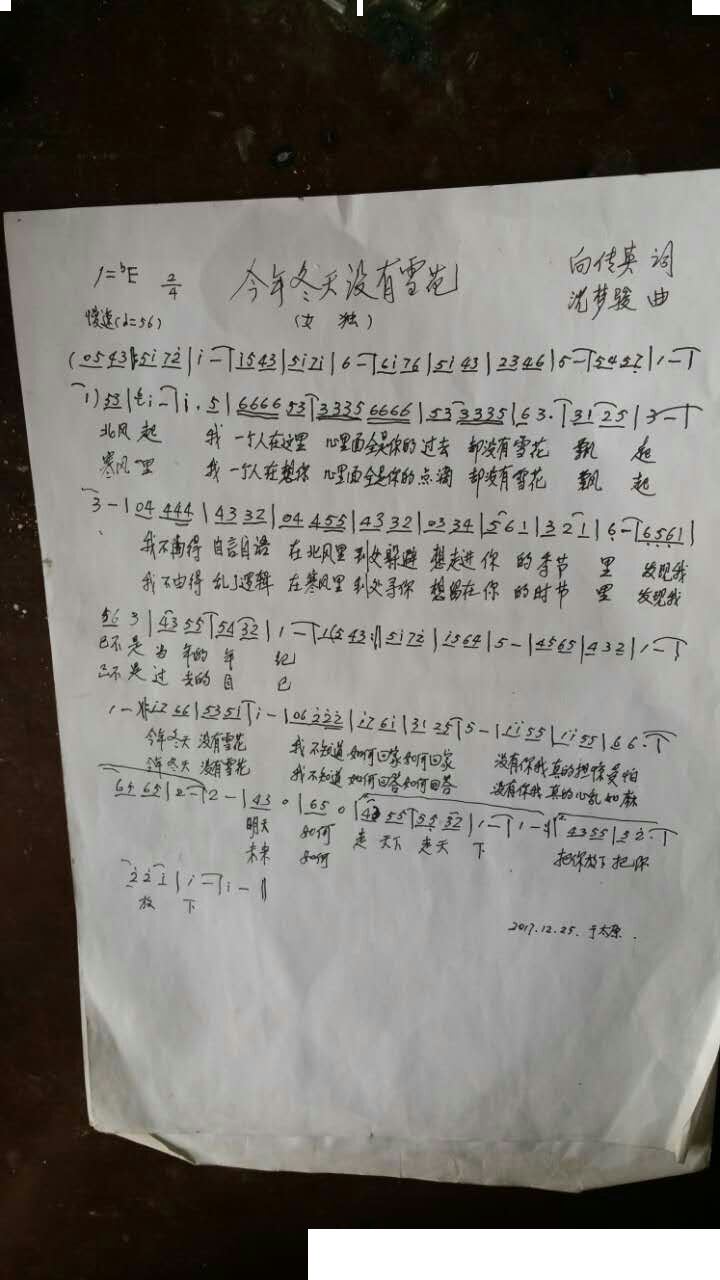 1=♭E 2/4 今年冬天没有雪花 向传英 词
慢速(♩=56) (女 独) 沈梦骏 曲
(0543|:5i72|i-|i543|5i7i|6-|6i76|5i43|2346|5-|5457|1-|
1)53|6i-|i.5|6666 53|3335 6666|53 3335|63.|31 25|3-|
北风 起 我 一个人在这里 心里面全是你的过去 却没有雪花 飘 起
寒风 里 我 一个人在想你 心里面全是你的点滴 却没有雪花 飘 起
3-|04 444|43 32|04 455|43 32|03 34|561|321|6-|6561|
我不懂得 自言自语 在北风里 到处躲避 想走进 你 的季节 里 发现我
我不由得 乱了逻辑 在寒风里 到处寻你 想留在 你 的时节 里 发现我
56 3|43 55|54 32|1-|1(543:||5172|i564|5-|4565|432|1-|
已不是 当 年的 年 纪
已不是 过 去的 自 己
1-)|:i7 66|53 51|i-|06 222|i7 6i|31 25|5-|11 55|11 55|66.|
今年冬天 没有雪花 我不知道 如何回家如何回家 没有你我真的担惊受怕
今年冬天 没有雪花 我不知道 如何回答如何回答 没有你我真的心乱如麻
65 65|2-|2-|43 0|65 0|43 55|54 32|1-|1-:||4355|32.|
明天 如何 走 天下 走天 下 把你放下把你
未来 如何
221|i-|i-||
放 下
2017.12.25.于太原.